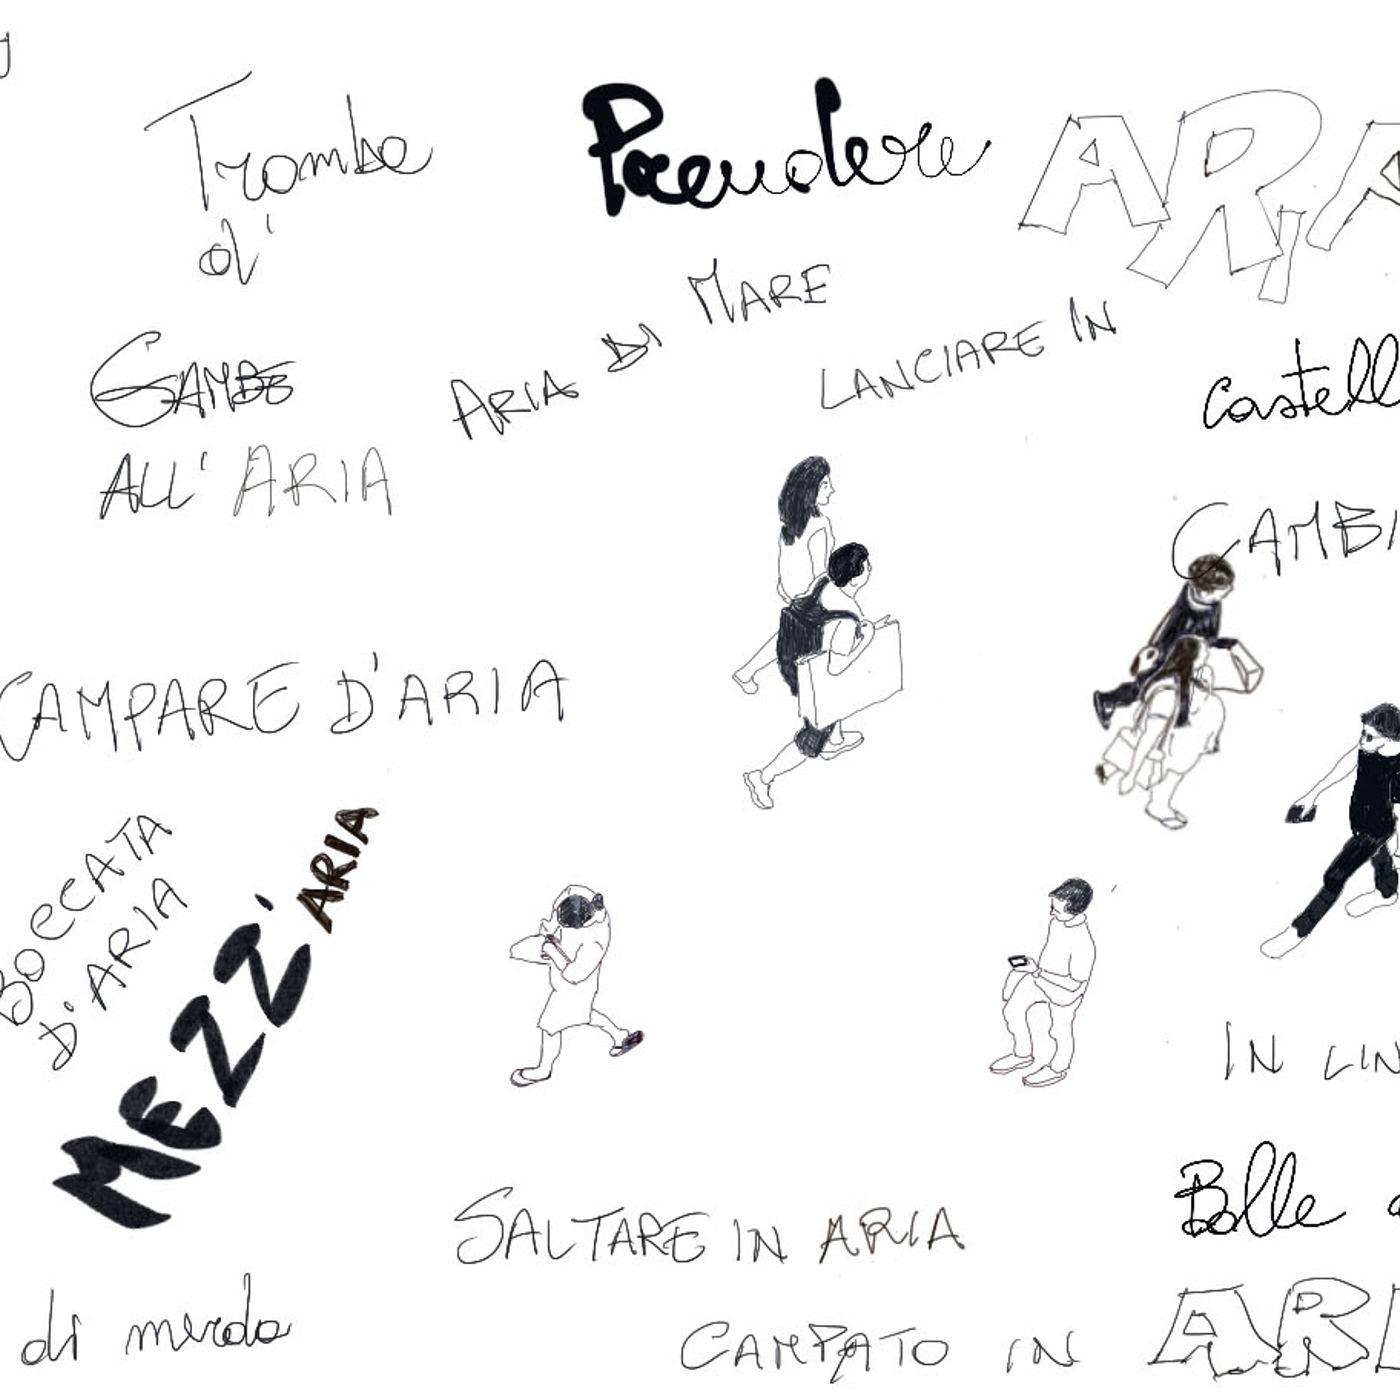 Tromba
d'
Prendere ARIA
ARIA DI MARE
LANCIARE IN
GAMBE
ALL'ARIA
Castell
CAMBI
CAMPARE D'ARIA
BOCCATA
D'ARIA
MEZZ'ARIA
IN LIN
Bolle
SALTARE IN ARIA
di merda
CAMPATO IN ARI